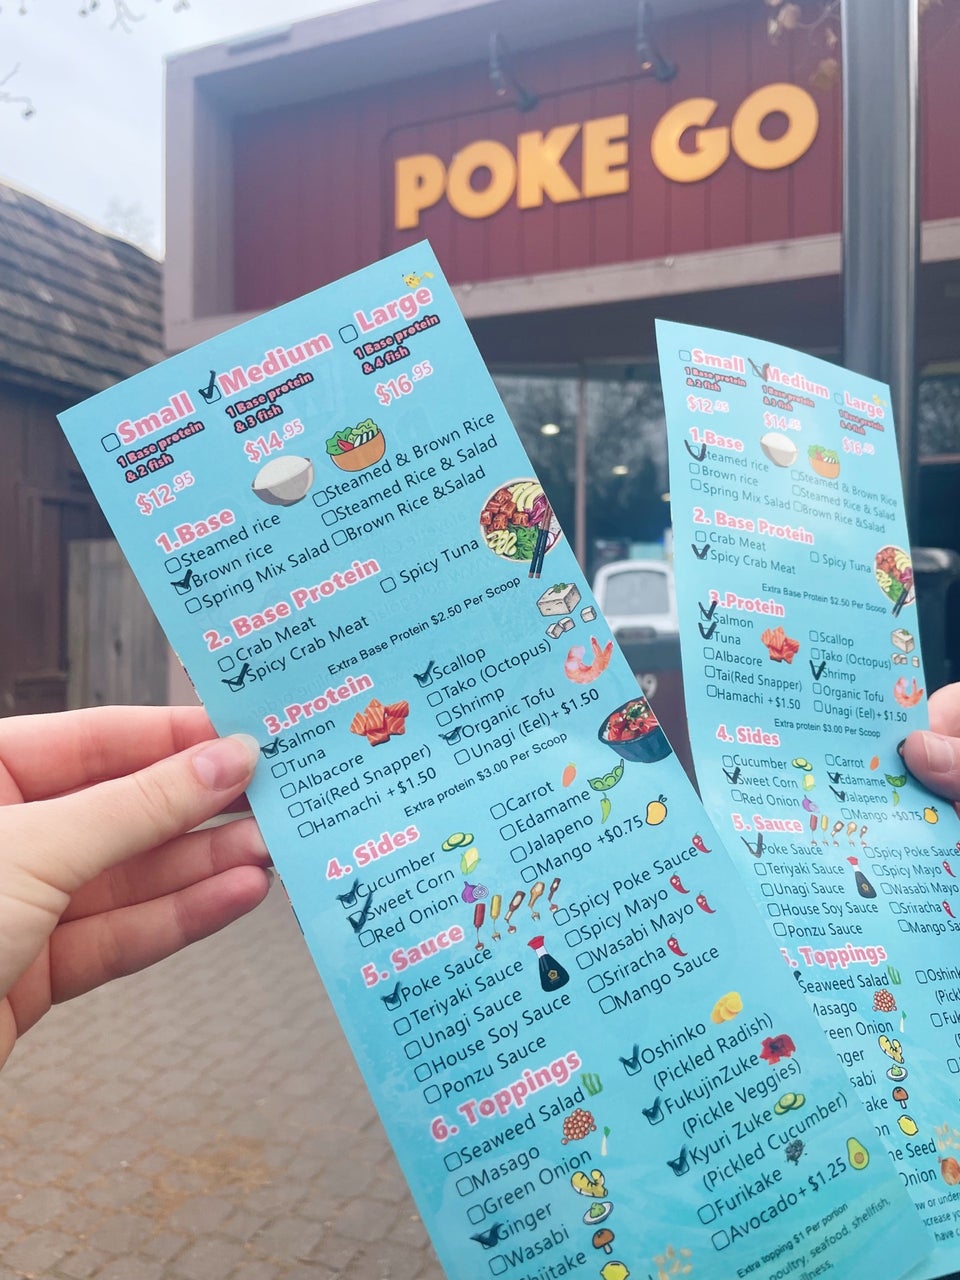 POKE GO
Small
1 Base protein
& 2 fish
$12.95
Medium
1 Base protein
& 3 fish
$14.95
Large
1 Base protein
& 4 fish
$16.95
1.Base
Steamed rice
Brown rice
Spring Mix Salad
Steamed & Brown Rice
Steamed Rice & Salad
Brown Rice &Salad
2. Base Protein
Crab Meat
Spicy Crab Meat
Spicy Tuna
Extra Base Protein $2.50 Per Scoop
3.Protein
Salmon
Tuna
Albacore
Tai(Red Snapper)
Hamachi +$1.50
Scallop
Tako (Octopus)
Shrimp
Organic Tofu
Unagi (Eel)+ $1.50
Extra protein $3.00 Per Scoop
4. Sides
Cucumber
Sweet Corn
Red Onion
Carrot
Edamame
Jalapeno
Mango +$0.75
5. Sauce
Poke Sauce
Teriyaki Sauce
Unagi Sauce
House Soy Sauce
Ponzu Sauce
Spicy Poke Sauce
Spicy Mayo
Wasabi Mayo
Sriracha
Mango Sauce
6. Toppings
Seaweed Salad
Masago
Green Onion
Ginger
Wasabi
Shiitake
Oshinko
(Pickled Radish)
FukujinZuke
(Pickle Veggies)
Kyuri Zuke
(Pickled Cucumber)
Furikake
Avocado+ $1.25
Extra topping $1 Per portion
poultry, seafood, shellfish,
Small
1 Base protein
& 2 fish
$12.95
Medium
1 Base protein
& 3 fish
$14.95
Large
1 Base protein
& 4 fish
$16.95
1.Base
Steamed rice
Brown rice
Spring Mix Salad
Steamed & Brown Rice
Steamed Rice & Salad
Brown Rice &Salad
2. Base Protein
Crab Meat
Spicy Crab Meat
Spicy Tuna
Extra Base Protein $2.50 Per Scoop
3.Protein
Salmon
Tuna
Albacore
Tai(Red Snapper)
Hamachi +$1.50
Scallop
Tako (Octopus)
Shrimp
Organic Tofu
Unagi (Eel)+ $1.50
Extra protein $3.00 Per Scoop
4. Sides
Cucumber
Sweet Corn
Red Onion
Carrot
Edamame
Jalapeno
Mango +$0.75
5. Sauce
Poke Sauce
Teriyaki Sauce
Unagi Sauce
House Soy Sauce
Ponzu Sauce
Spicy Poke Sauce
Spicy Mayo
Wasabi Mayo
Sriracha
Mango Sa
. Toppings
Seaweed Salad
Masago
reen Onion
nger
sabi
ake
Oshin
(Pick
Fuk
ne Seed
Onion